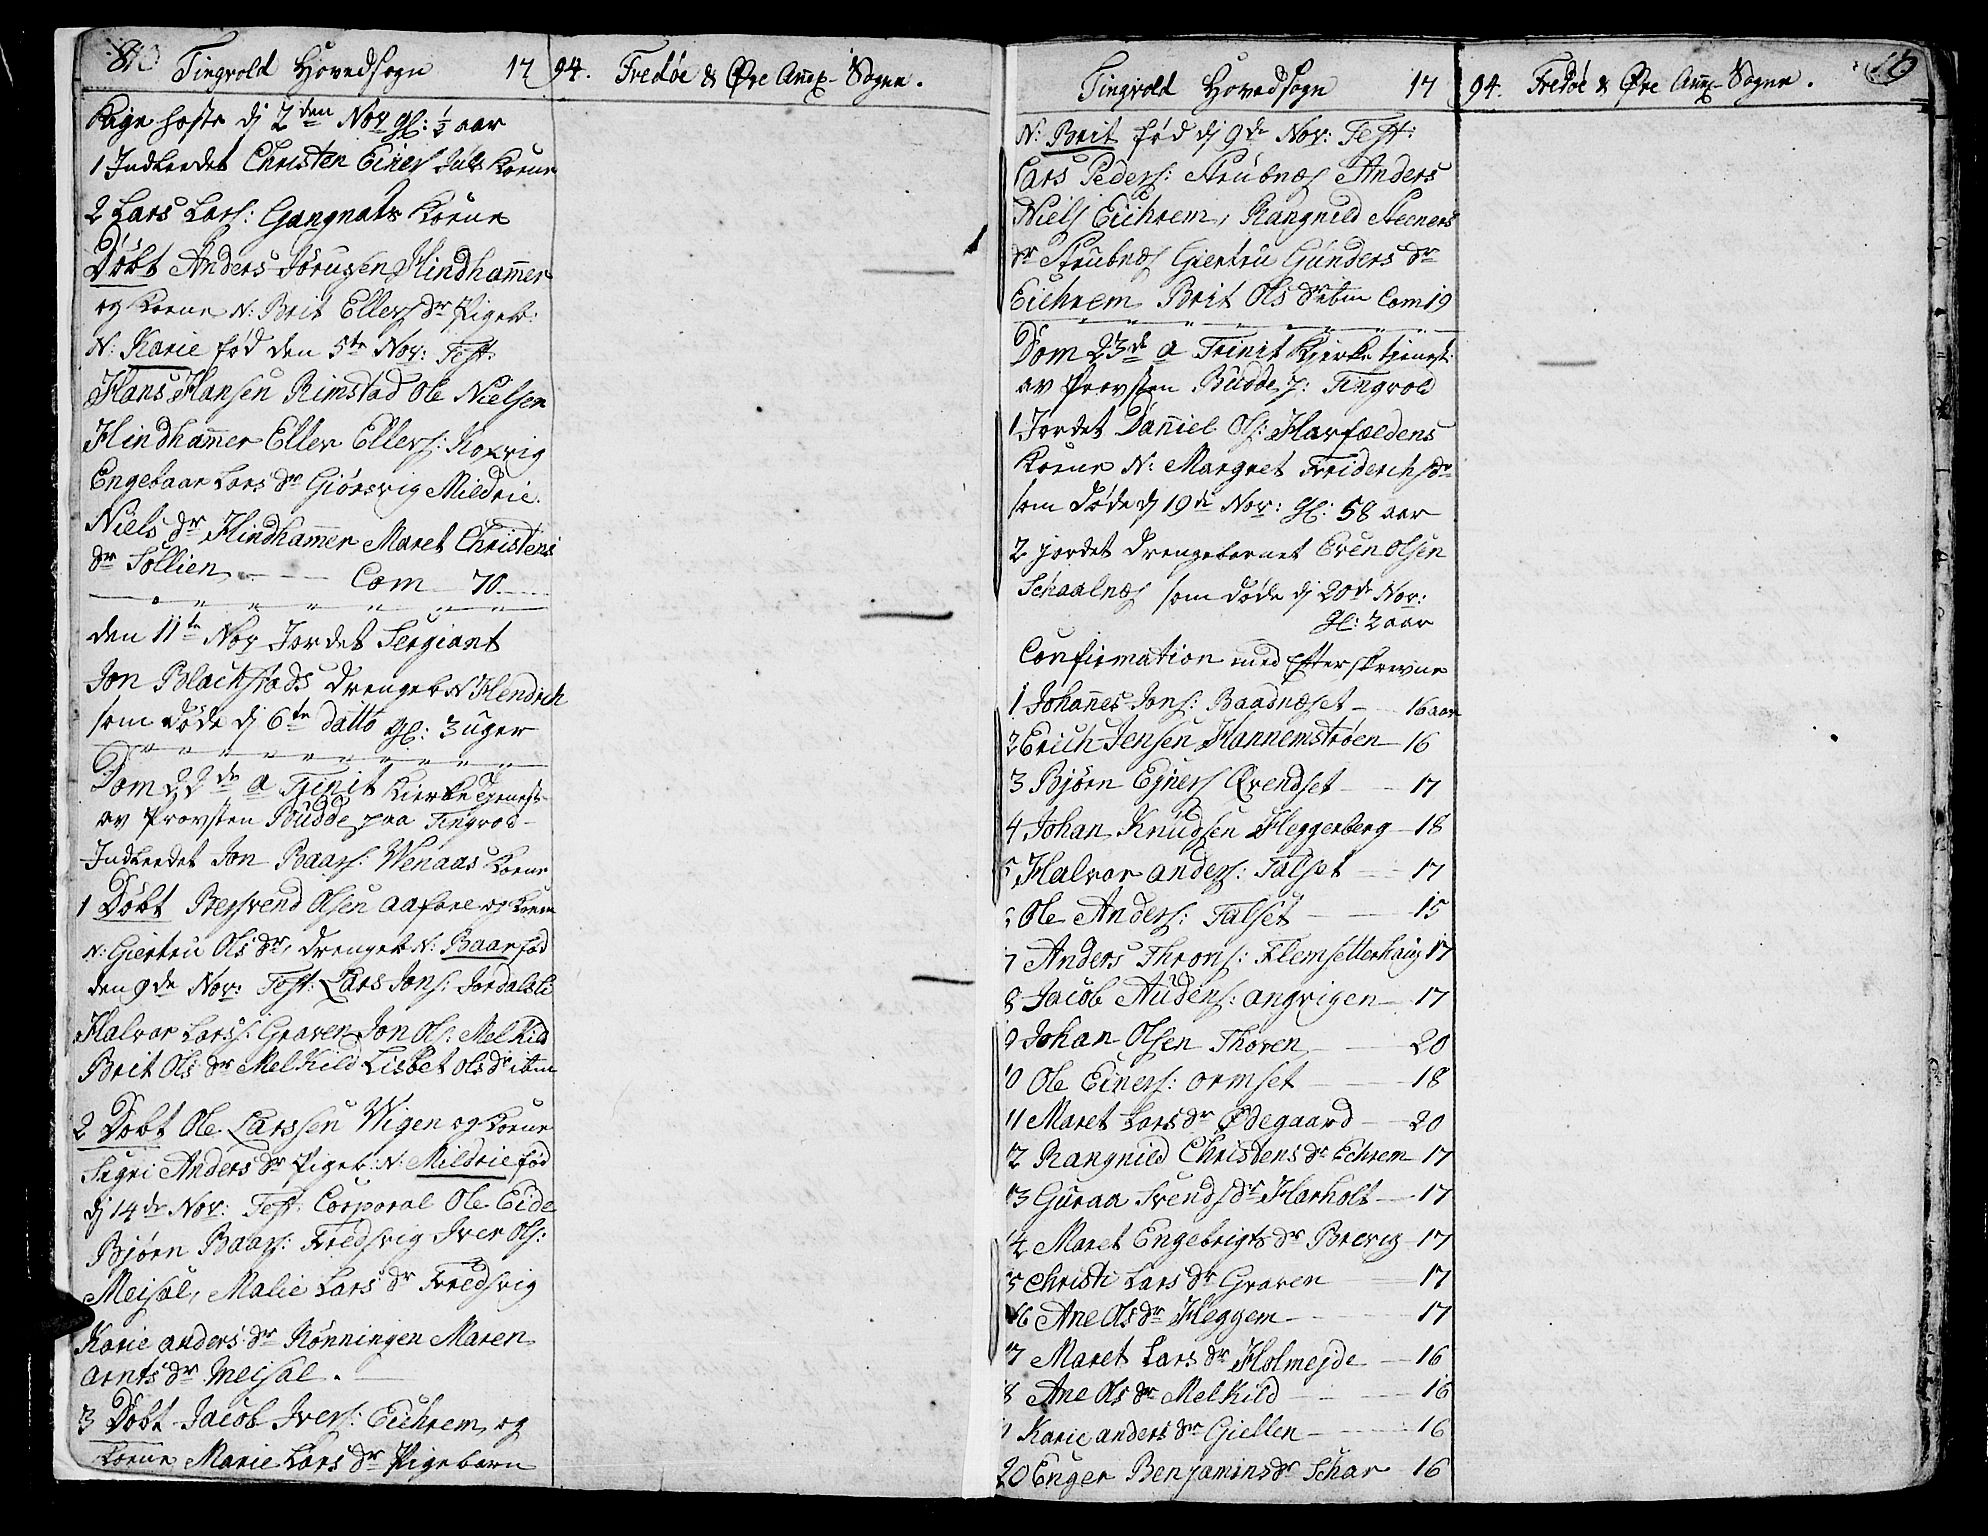 Tingvold Hovedsogn 17
94. Fredöe & Øre Anex-Sogne.
Kige hoste dj 2den Nov gl: ½ aar
1 Indleedet Christen Einers Juls Konne
2 Lars Lars: Gangnats Konne
Döbt Anders Jörusen Hindhammer
og Konne N: Brit Ellers dr Pigeb:
N: Karie fød den 5te Nov: Test:
Hans Hansen Rimstad Ole Nielsen
Hindhammer Eller Ellers: Koxvig
Engebaar Lars dr Giörsvig Mildrie
Niels dr Hindhammer Maret Christens
dr Sollien Com 70
den 11te Nov Jordet Sergiant
Jon Blackstads Drengeb N Hendrich
som döde dj 6te datto gl: 3 uger
Dom 22de a Trinit Kierke tjenest
av Provsten Budde paa Tingvod
Indleedet Jon Baars: Wenaas Konne
1 Döbt Bersvend Olsen Aafare og Konne
N: Giertru Ols dr, Drengeb N: Baar fød
den 9de Nov: Test: Lars Jons: Jordalsli
Halvor Larss: Graven Jon Ols: Melkild
Brit Ols dr Melkild Lisbet Ols dr ibm
2 Döbt Ole Larssen Wigen og Konne
Sigri Anders dr Pigeb: N: Mildrie fød
dj 14de Nov: Test: Corporal Ole Eide
Bjørn Baars: Fredsvig Iver Ols:
Meisal, Malie Lars dr Fredsvig
Karie anders dr Rönningen Maren
Arnts dr Meisal.
3 Döbt Jacob Ivers: Eichrem og
Konne Marie Lars dr Pigebarn
Tingvold Hovedsogn 17
94. Fredöe & Øre Anx-Sogne.
16
N: Brit fød dj 9de Nov: Test:
Lars Peders: Strubnæs Anders
Niels Eichrem, Rangnild Steners
dr Strubnæs Giertru Gunders dr
Eichrem Brit Ols dr ibm Com 19
Dom 23de a Trinit Kjerke tjenest:
av Provsten Budde p: Tingvold
1 Jordet Daniel Ols: Harfældens
Konne N: Margret Friderichs dr
som döde dj 19de Nov: gl: 58 aar
2 jordet Drengebarnet Even Olsen
Schaalnæs som döde dj 20de Nov:
gl: 2 aar
Confirmation med Efterskrevne
1 Johannes Jons: Baadnæset 16 aar
2 Erich Jensen Hannemstrøen 16
3 Bjørn Ejners Qvendset 17
4 Johan Knudsen Heggerberg 18
5 Halvor anders: Talset 17
Ole Anders: Talset 15
7 Anders Throns: Flemsetterhaug 17
8 Jacob Audens: angvigen 17
9 Johan Olsen Thoren 20
10 Ole Einers: ormset 18
11 Maret Lars dr Ødegaard 20
12 Rangnild Christens dr Echrem 17
13 Guraa Svends dr Harholt 17
14 Maret Engebrigts dr Brevig 17
15 Christi Lars dr Graven 17
16 Ane Ols dr Heggem 17
17 Maret Lars dr Holmejde 16
18 Ane Ols dr Melkild 16
19 Karie anders dr Giellen 16
20 Enger Benjamins dr Schar 16